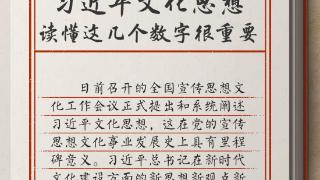 习近平文化思想
读懂这几个数字很重要
日前召开的全国宣传思想文
化工作会议正式提出和系统阐述
习近平文化思想，这在党的宣传
思想文化事业发展史上具有里程
碑意义。习近平总书记在新时代
文化建设方面的新思想新观点新